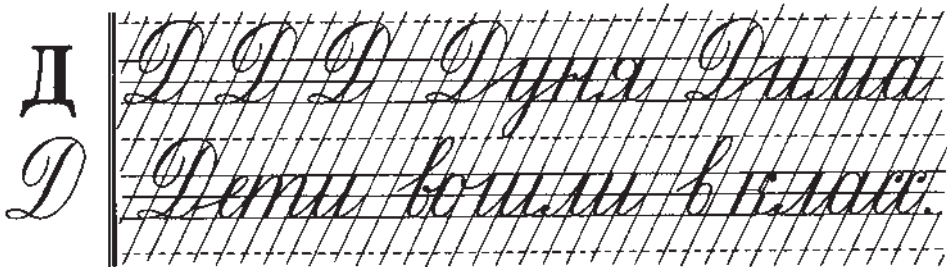 Д Д Д Д Дуня Дима
Д Дети вошли в класс.